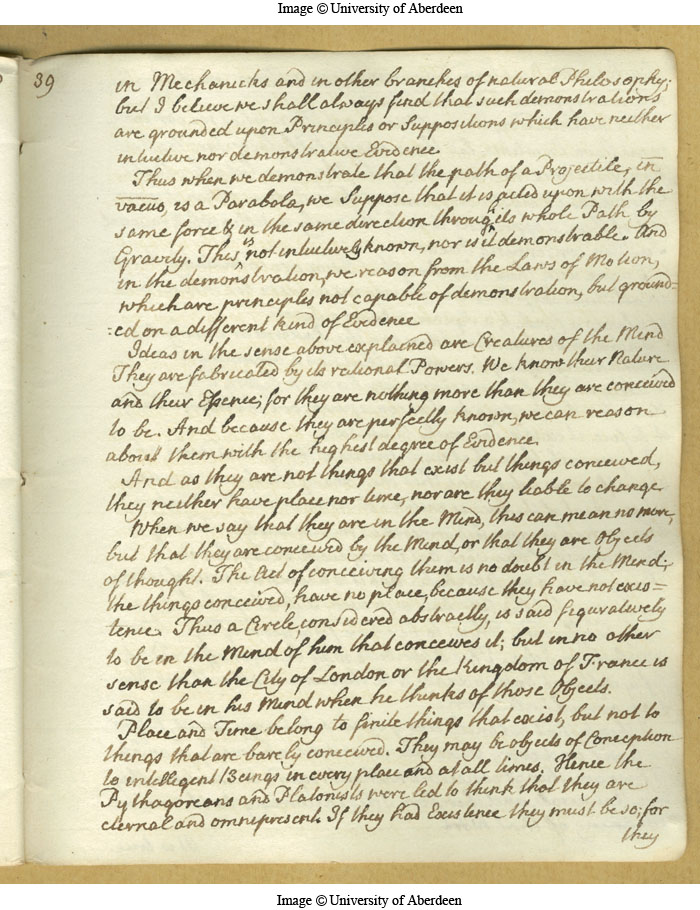 Image © University of Aberdeen
39
in Mechanicks and in other branches of natural Philosophy;
but I believe we shall always find that such demonstrations
are grounded upon Principles or Suppositions which have neither
intuitive nor demonstrative Evidence
Thus when we demonstrate that the path of a Projectile, in
vacuo, is a Parabola, we Suppose that it is acted upon with the
same force & in the same direction throug its whole Path by
Gravity. This is not intuitively known, nor is it demonstrable. And
in the demonstration, we reason from the Laws of Motion,
which are principles not capable of demonstration, but ground=
=ed on a different kind of Evidence
Ideas in the sense above explained are Creatures of the Mind
They are fabricated by its rational Powers. We know their Nature
and their Essence; for they are nothing more than they are conceived
to be. And because they are perfectly known, we can reason
about them with the highest degree of Evidence.
And as they are not things that exist but things conceived,
they neither have place nor time, nor are they liable to change
When we say that they are in the Mind, this can mean no more,
but that they are conceived by the Mind, or that they are Objects
of thought. The Act of conceiving them is no doubt in the Mind;
the things conceived, have no place, because they have not exis=
tence. Thus a Circle, considered abstractly, is said figuratively
to be in the Mind of him that conceives it; but in no other
sense than the City of London or the Kingdom of France is
said to be in his Mind when he thinks of those Objects.
Place and Time belong to finite things that exist, but not to
things that are barely conceived. They may be objects of Conception
to intelligent Beings in every place and at all times. Hence the
Pythagoreans and Platonists were led to think that they are
eternal and omnipresent. If they had Existence they must be so; for
they
Image © University of Aberdeen